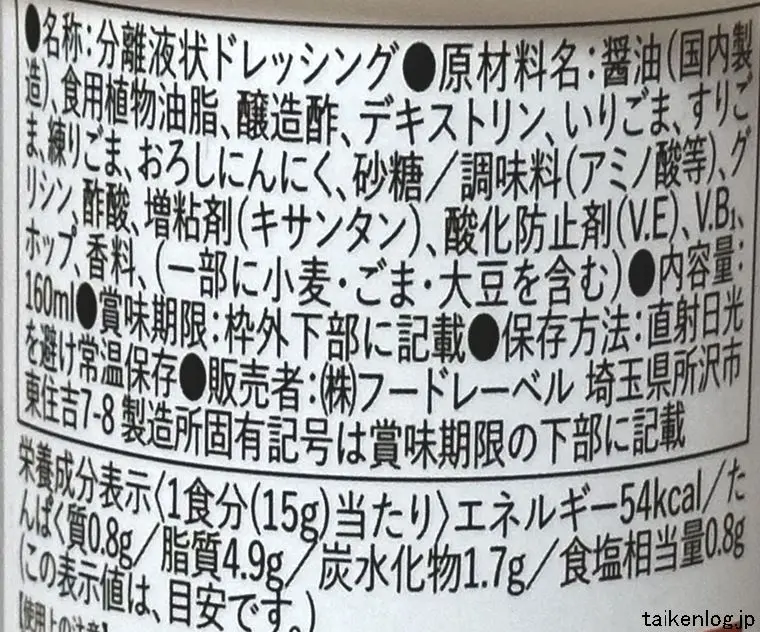 ●名称:分離液状ドレッシング●原材料名:醤油(国内製
造)、食用植物油脂、醸造酢、デキストリン、いりごま、すりご
ま、練りごま、おろしにんにく、砂糖/調味料(アミノ酸等)、グ
リシン、酢酸、増粘剤(キサンタン)、酸化防止剤(V.E)、V.B₁、
ホップ、香料、(一部に小麦・ごま・大豆を含む)●内容量:
160ml●賞味期限:枠外下部に記載●保存方法:直射日光
を避け常温保存●販売者:㈱フードレーベル 埼玉県所沢市
東住吉7-8 製造所固有記号は賞味期限の下部に記載
栄養成分表示〈1食分(15g)当たり〉エネルギー54kcal/た
んぱく質0.8g/脂質4.9g/炭水化物1.7g/食塩相当量0.8g
(この表示値は、目安です。)
【使用上の注意】
taikenlog.jp